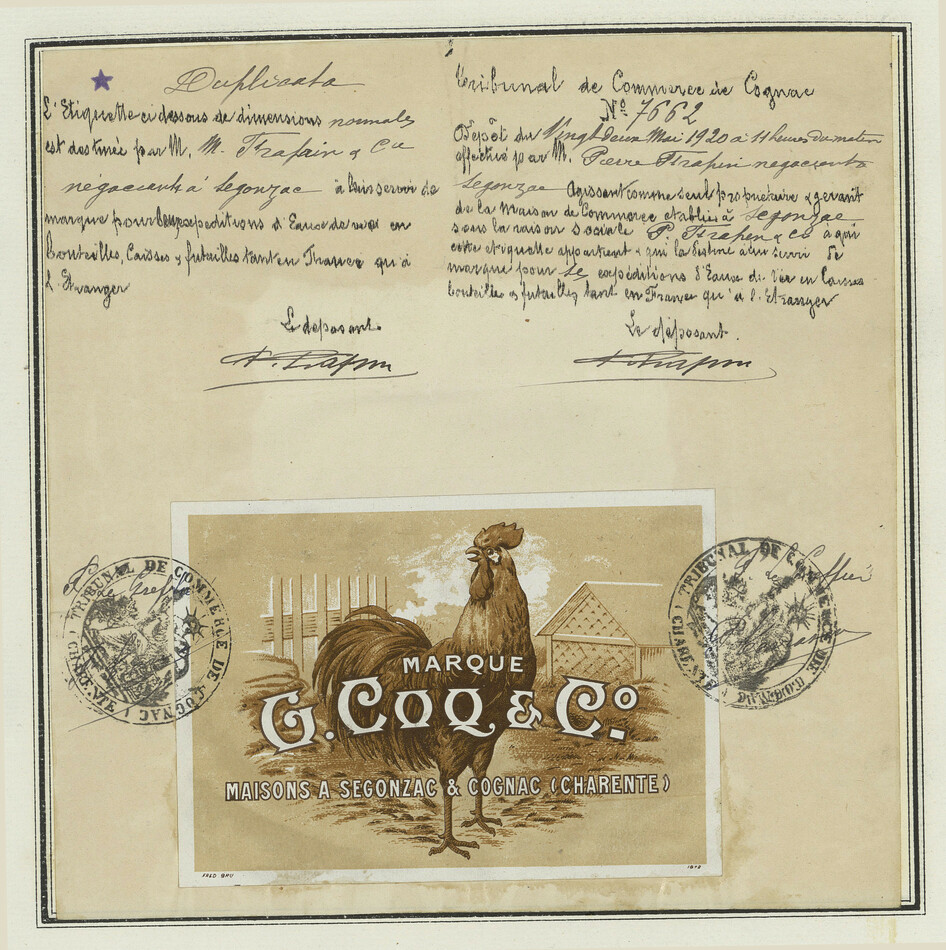 Duplicata
L'Etiquette ci dessous de dimensions normales
est destinée par M. M. Frapin & Cie
négociants à Segonzac à lui servir de
marque pour expéditions d'Eaux de vie en
bouteilles, Caisses & futailles tant en France qu'à
L'Etranger
Le déposant.
P. Frapin
Tribunal de Commerce de Cognac
No 7662
Dépôt du Vingt Deux Mai 1920 à 11 heures du matin
effectué par M. Pierre Frapin négociant à
Segonzac Agissant comme seul propriétaire & gérant
de la Maison de Commerce établie à Segonzac
sous la raison sociale P. Frapin & Cie à qui
cette étiquette appartient & qui la destine à lui servir de
marque pour se expéditions d'Eaux de Vie en Caisses
bouteilles & futailles tant en France qu'à l'Etranger
Le déposant.
P. Frapin
TRIBUNAL DE COMMERCE DE COGNAC (CHARENTE)
Le Greffier
TRIBUNAL DE COMMERCE DE COGNAC (CHARENTE)
Le Greffier
MARQUE
G. COQ & Co
MAISONS A SEGONZAC & COGNAC (CHARENTE)
FRED BRU